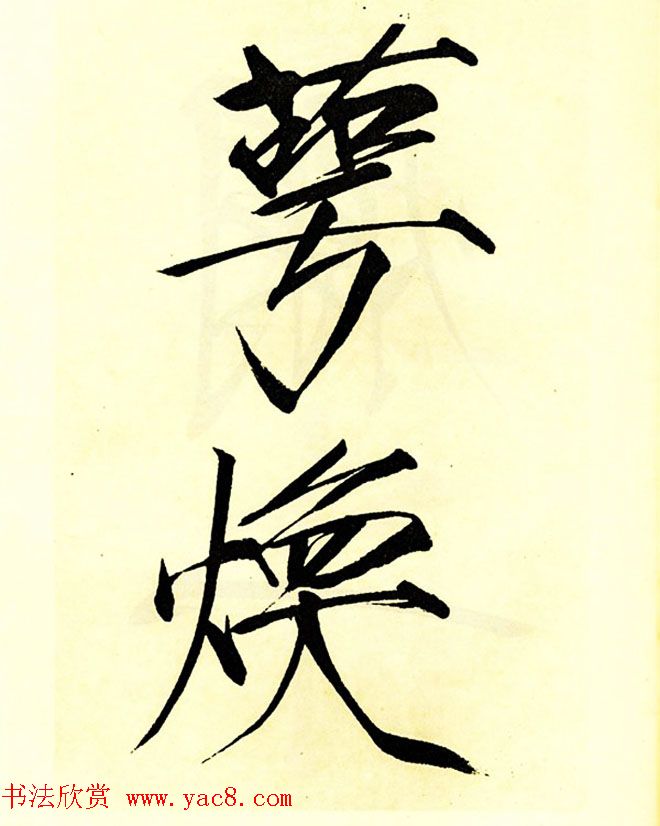 萼
焕
书法欣赏 www.yac8.com